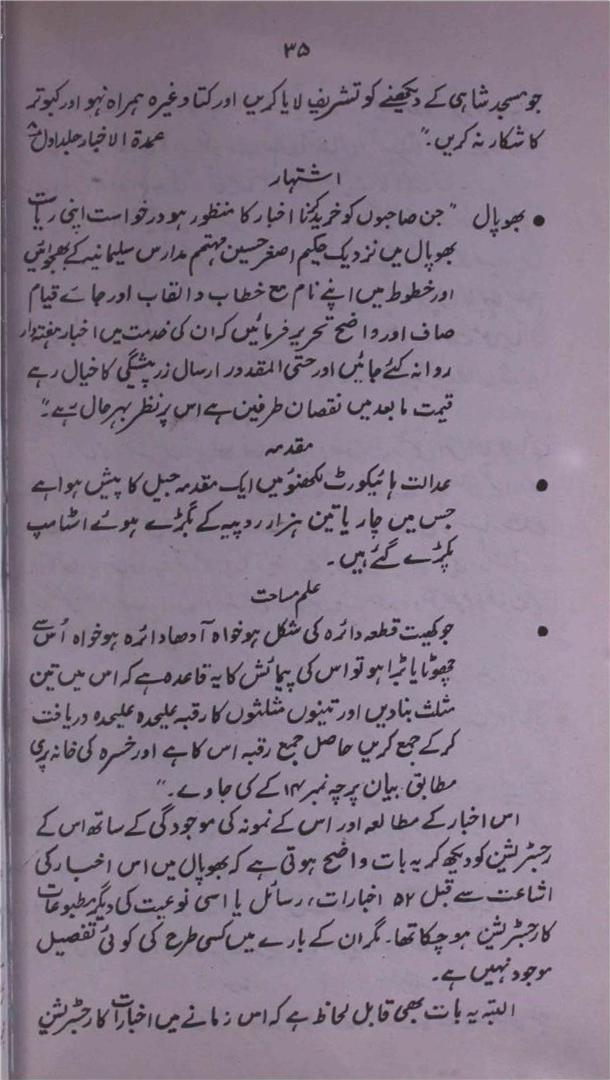 ۳۵
جو مسجد شاہی کے دیکھنے کو تشریف لایا کریں اور کتا وغیرہ ہمراہ نہو اور کبوتر
کا شکار نہ کریں۔" عمدۃ الاخبار جلد اول
اشتہار
● بھوپال "جن صاحبوں کو خرید کرنا اخبار کا منظور ہو درخواست اپنی ریاست
بھوپال میں نزدیک حکیم اصغر حسین مہتمم مدارس سلیمانیہ کے بھجوائیں
اور خطوط میں اپنے نام مع خطاب والقاب اور جائے قیام
صاف اور واضح تحریر فرمائیں کہ ان کی خدمت میں اخبار ہفتہ وار
روانہ کئے جائیں اور حتی المقدور ارسال زر پیشگی کا خیال رہے
قیمت مابعد میں نقصان طرفین ہے اس پر نظر بہر حال ہے۔"
مقدمہ
● عدالت ہائیکورٹ لکھنؤ میں ایک مقدمہ جبل کا پیش ہوا ہے
جس میں چار یا تین ہزار روپیہ کے بگڑے ہوئے اسٹامپ
پکڑے گئے ہیں۔
علم مساحت
● جو کھیت قطعہ دائرہ کی شکل ہو خواہ آدھا دائرہ ہو خواہ اُس سے
چھوٹا یا بڑا ہو تو اس کی پیمائش کا یہ قاعدہ ہے کہ اس میں تین
مثلث بنا دیں اور تینوں مثلثوں کا رقبہ علیحدہ علیحدہ دریافت
کر کے جمع کریں حاصل جمع رقبہ اس کا ہے اور خسرہ کی خانہ پری
مطابق بیان پرچہ نمبر ۱۴ کے کی جاوے۔"
اس اخبار کے مطالعہ اور اس کے نمونہ کی موجودگی کے ساتھ اس کے
رجسٹریشن کو دیکھ کر یہ بات واضح ہوتی ہے کہ بھوپال میں اس اخبار کی
اشاعت سے قبل ۵۷ اخبارات، رسائل یا اسی نوعیت کی دیگر مطبوعات
کا رجسٹریشن ہو چکا تھا۔ مگر ان کے بارے میں کسی طرح کی کوئی تفصیل
موجود نہیں ہے۔
البتہ یہ بات بھی قابل لحاظ ہے کہ اس زمانے میں اخبارات کا رجسٹریشن